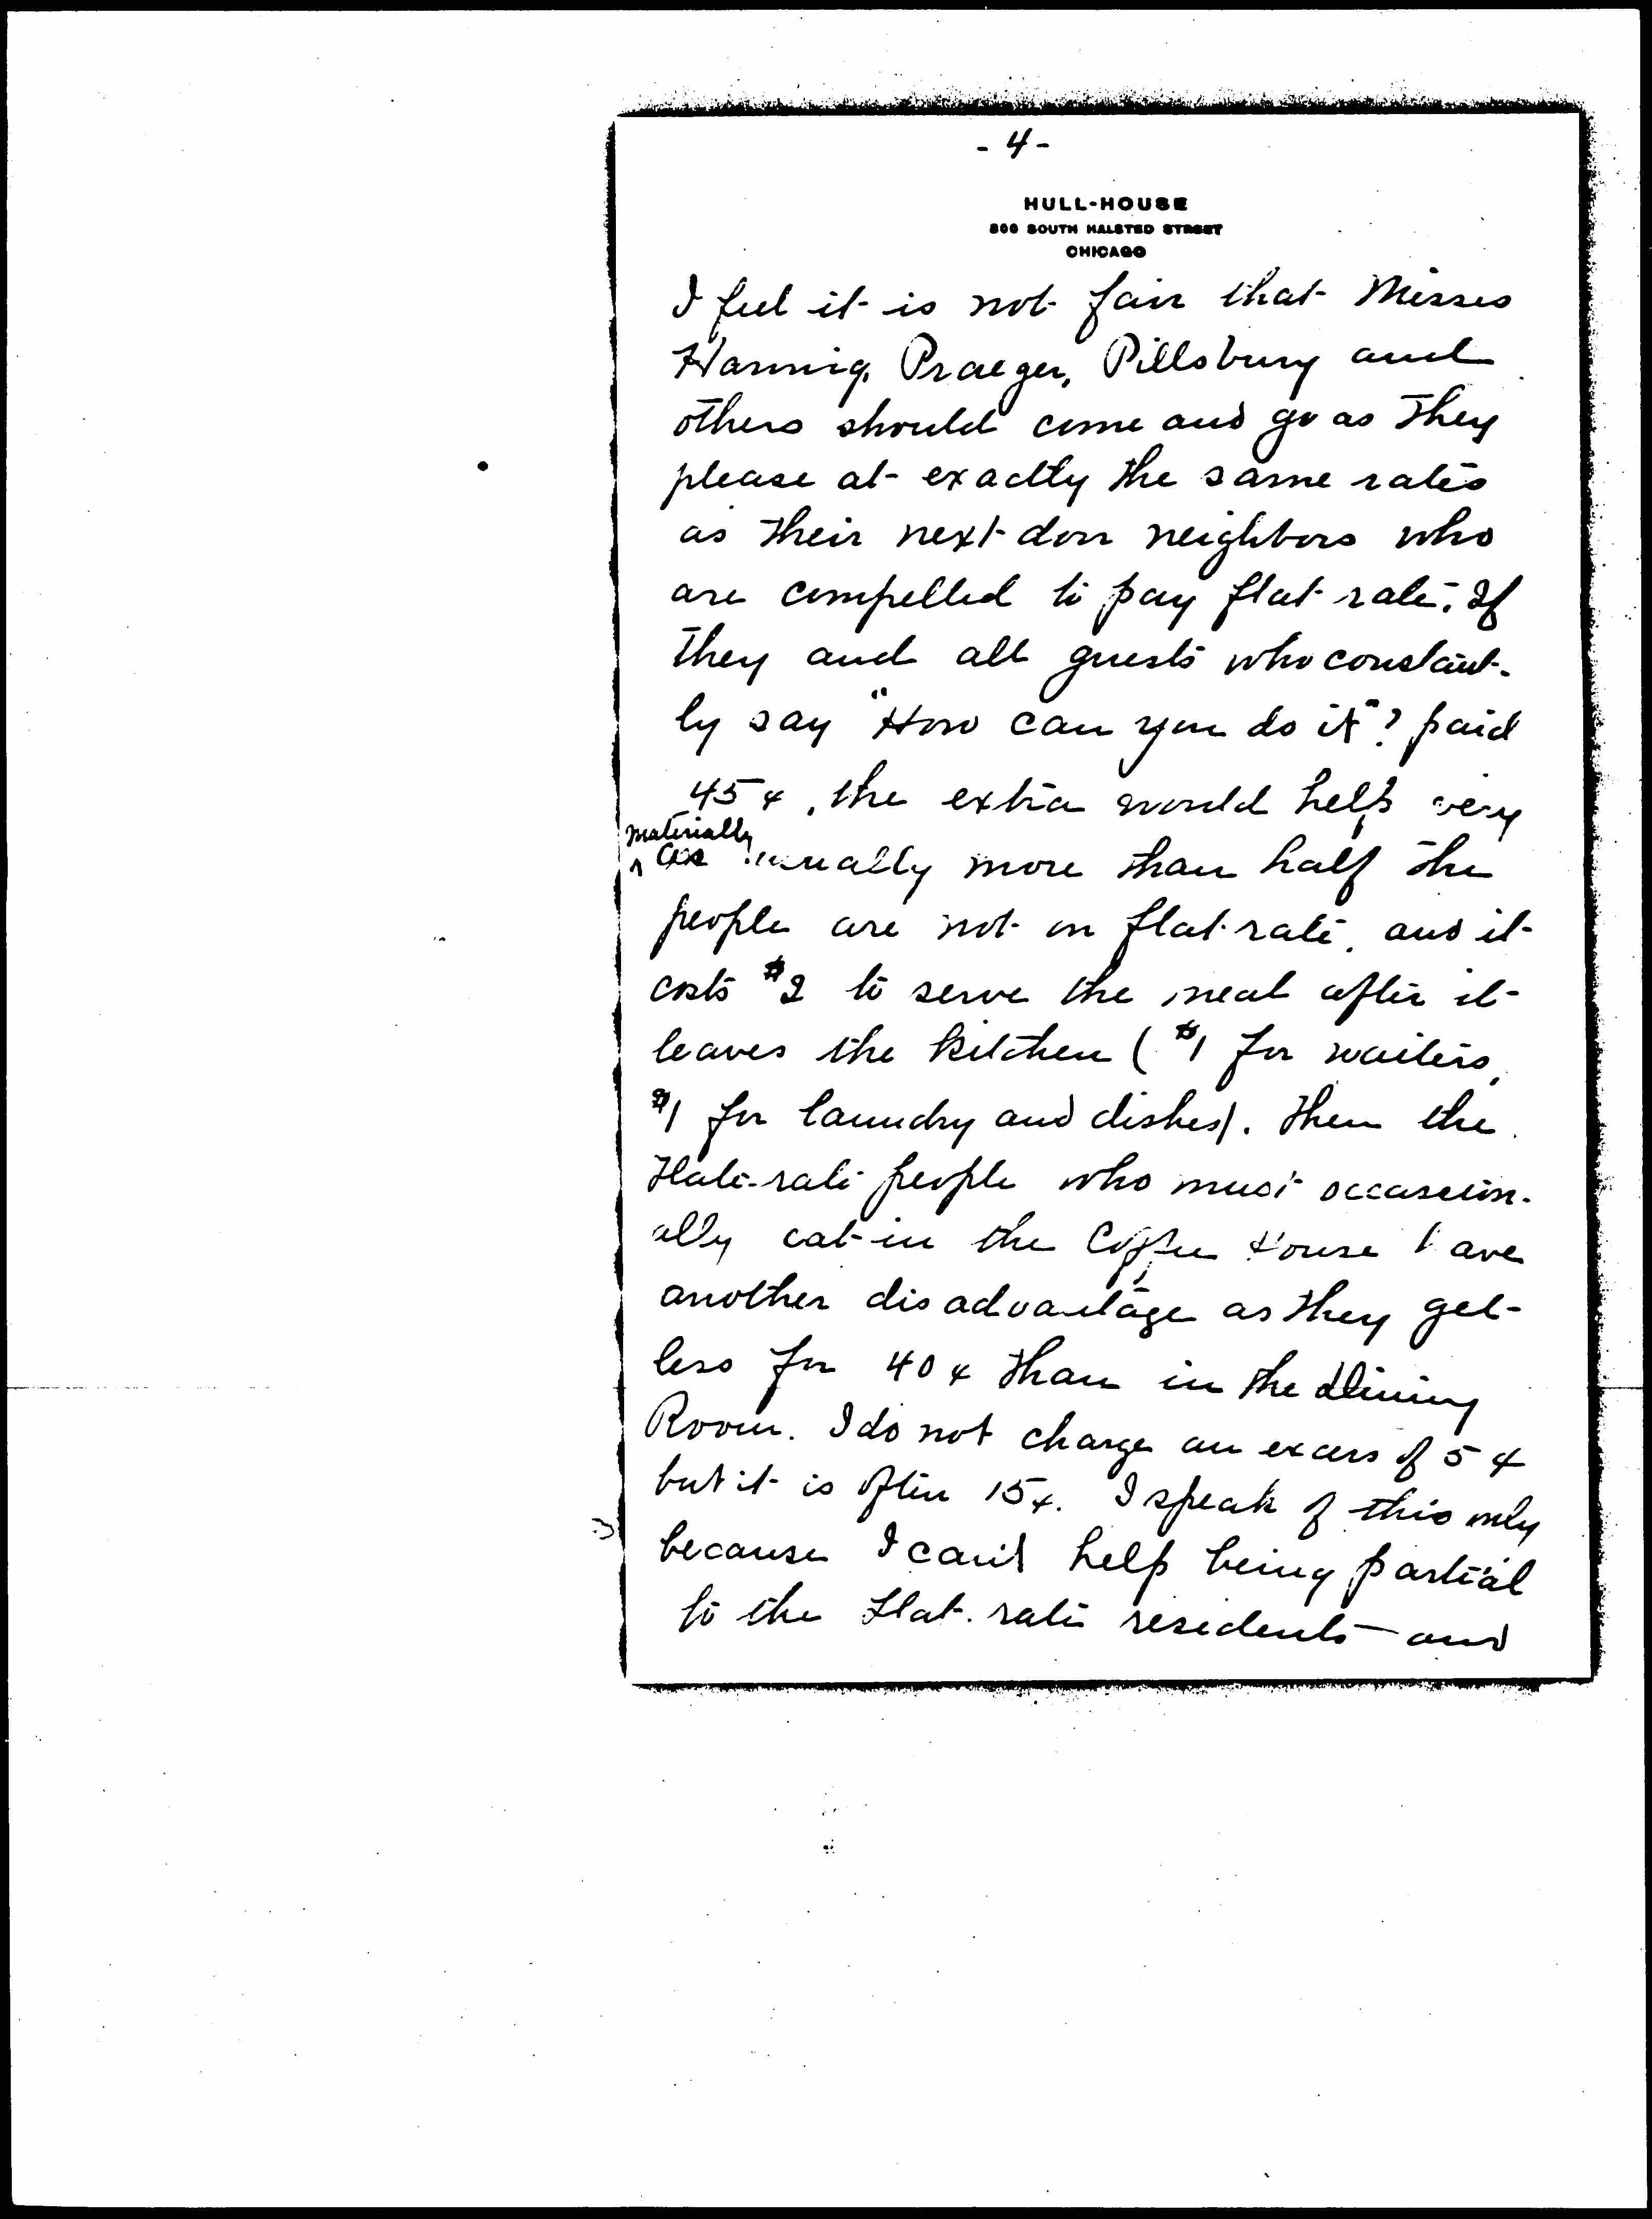 - 4 -
HULL-HOUSE
800 SOUTH HALSTED STREET
CHICAGO
I feel it is not fair that Misses
Hannig, Praeger, Pillsbury and
others should come and go as they
please at exactly the same rates
as their next door neighbors who
are compelled to pay flat rate. If
they and all guests who constant-
ly say "How can you do it"? paid
45¢, the extra would help very
materially
^ as usually more than half the
people are not on flat rate, and it
costs $2 to serve the meal after it
leaves the kitchen ($1 for waiters,
$1 for laundry and dishes). Then the
flat-rate people who must occasion-
ally eat in the Coffee House have
another disadvantage as they get
less for 40¢ than in the Dining
Room. I do not charge an excess of 5¢
but it is often 15¢. I speak of this only
because I can't help being partial
to the flat-rate residents — and